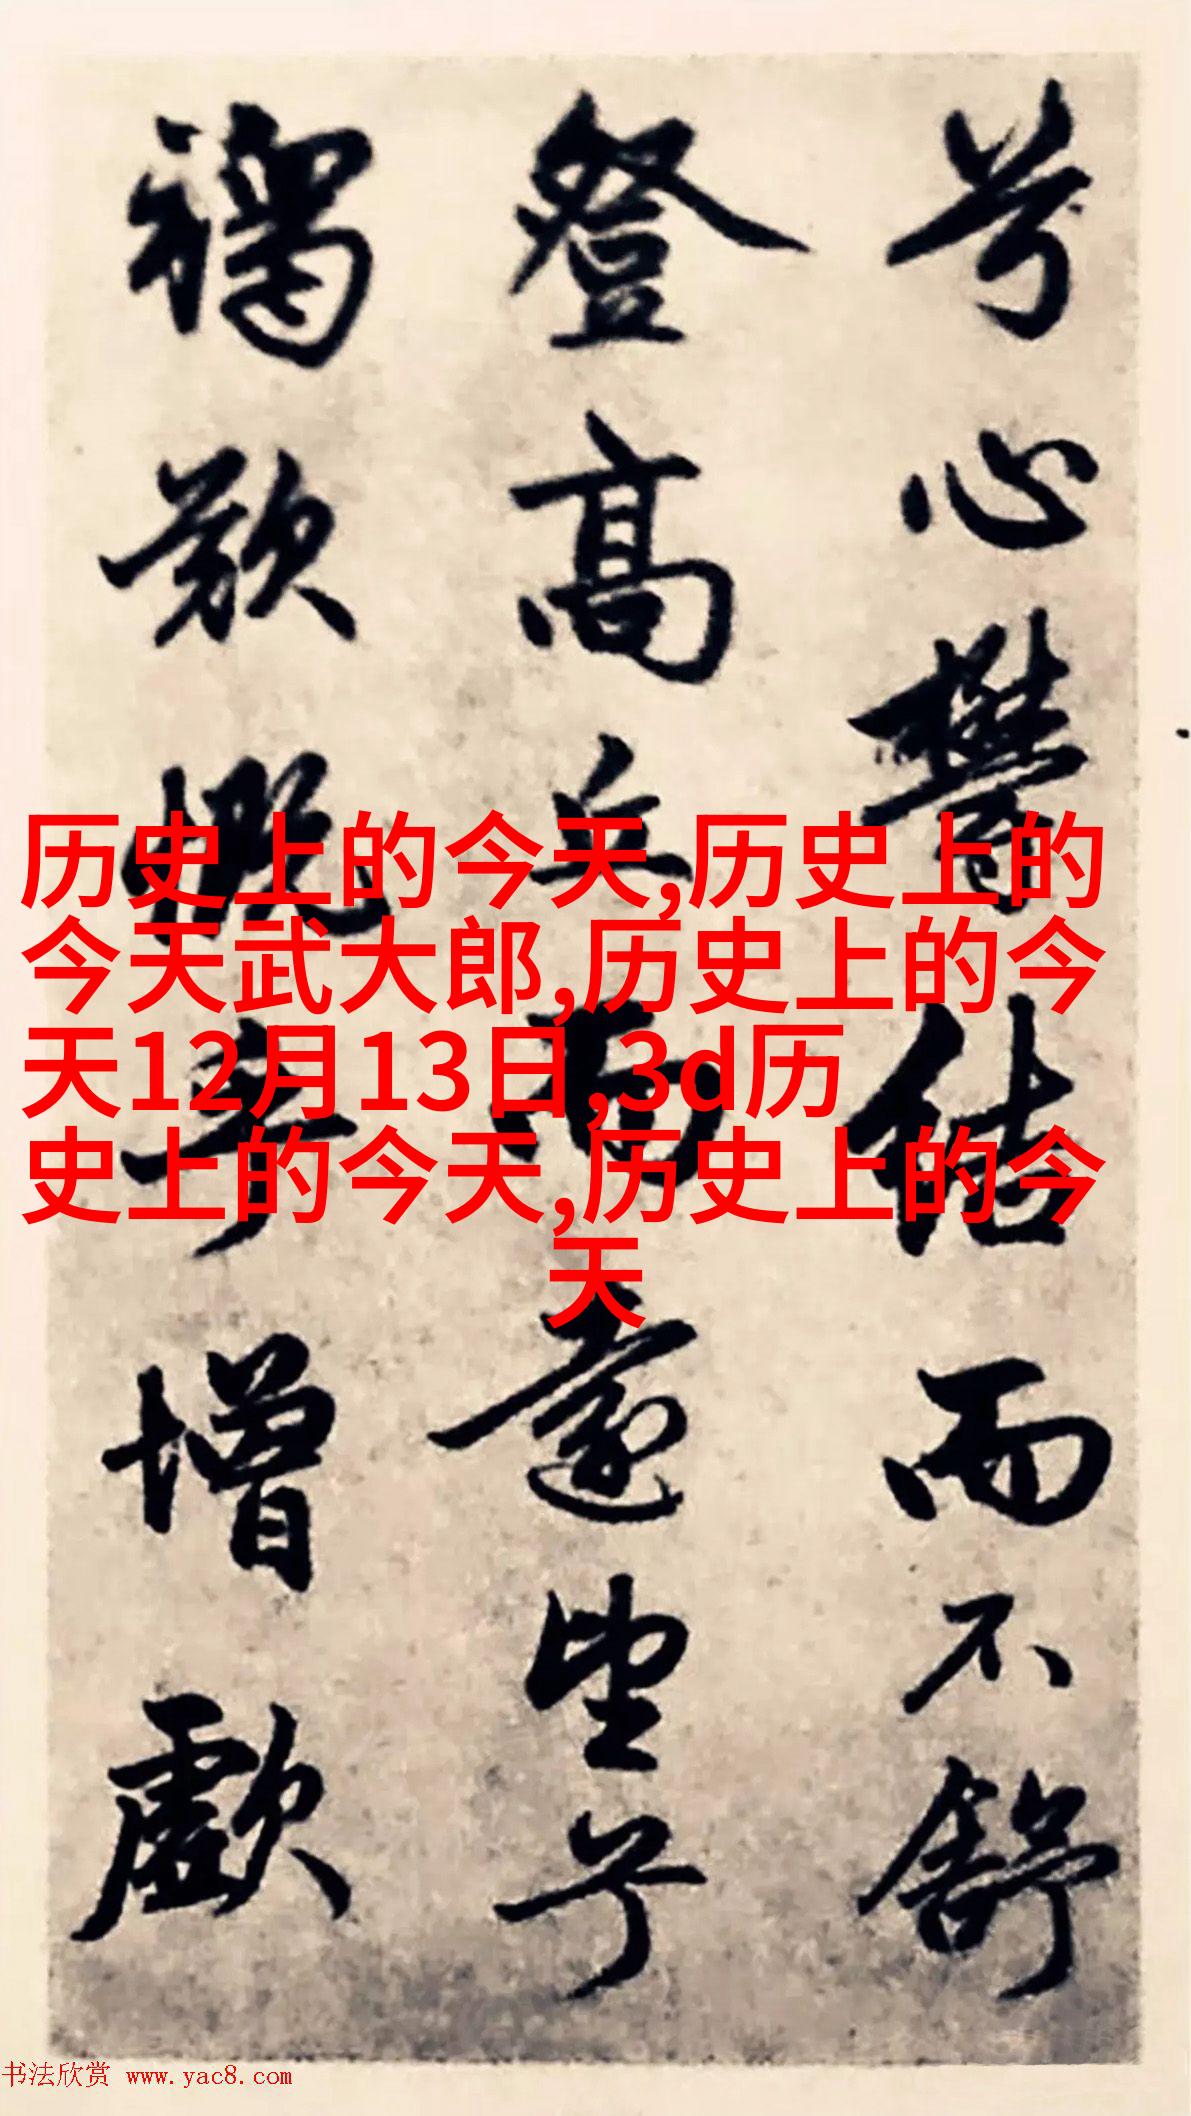 兮心鬱結而不舒
登高丘而遠望兮
增歔
历史上的今天,历史上的
今天武大郎,历史上的今
天12月13日,3d历
史上的今天,历史上的今
天
书法欣赏 www.yac8.com